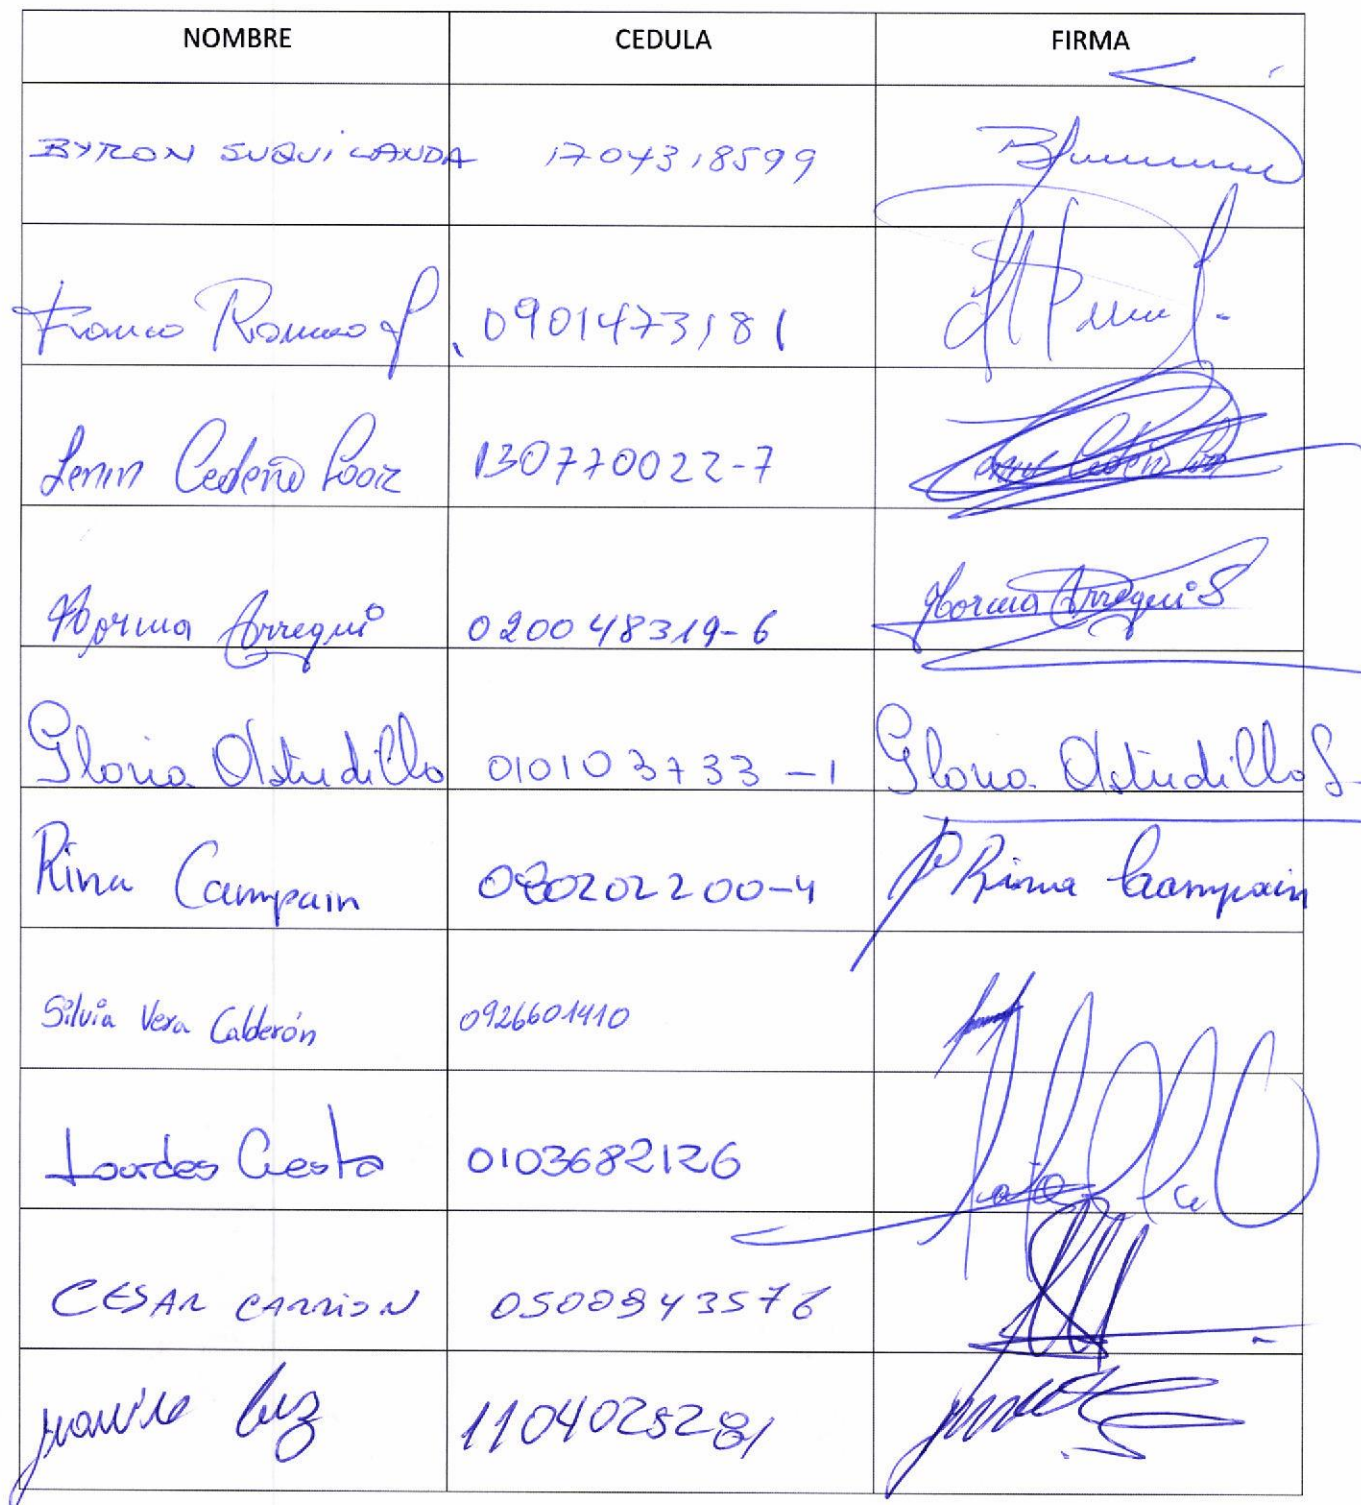 NOMBRE CEDULA FIRMA
BYRON SUQUILANDA 1704318599
Franco Romero 0901473181
Lenin Cedeño Loor 130770022-7 Cedeño
Norma Arregui 020048319-6 Norma Arregui S
Gloria Astudillo 010103733-1 Gloria Astudillo S.
Rina Campain 080202200-4 Rina Campain
Silvia Vera Calderón 0926601410
Lourdes Cuesta 0103682126
CESAR CARRION 0500843576
1104025281